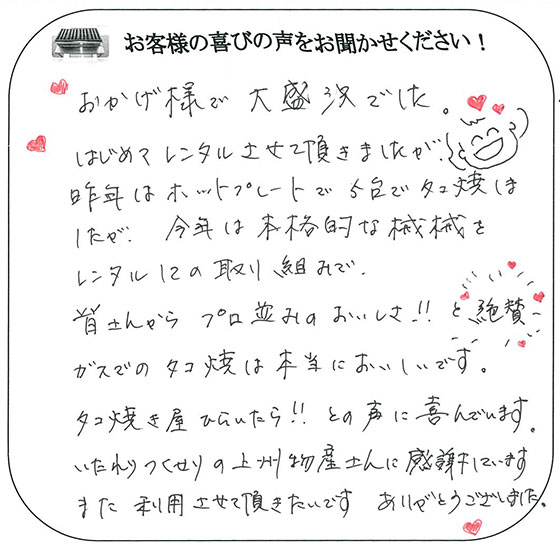 お客様の喜びの声をお聞かせください！
おかげ様で 大盛況でした。
はじめて レンタルさせて頂きましたが、
昨年は ホットプレートで 5台で タコ焼しま
したが、 今年は 本格的な 機械を
レンタルしての 取り組みで、
皆さんから プロ並みの おいしさ!! と 絶賛
ガスでの タコ焼は 本当に おいしいです。
タコ焼き屋 ひらいたら!! との声に 喜んでいます。
いたれりつくせりの 上州物産さんに 感謝しています
また 利用させて頂きたいです ありがとうございました。